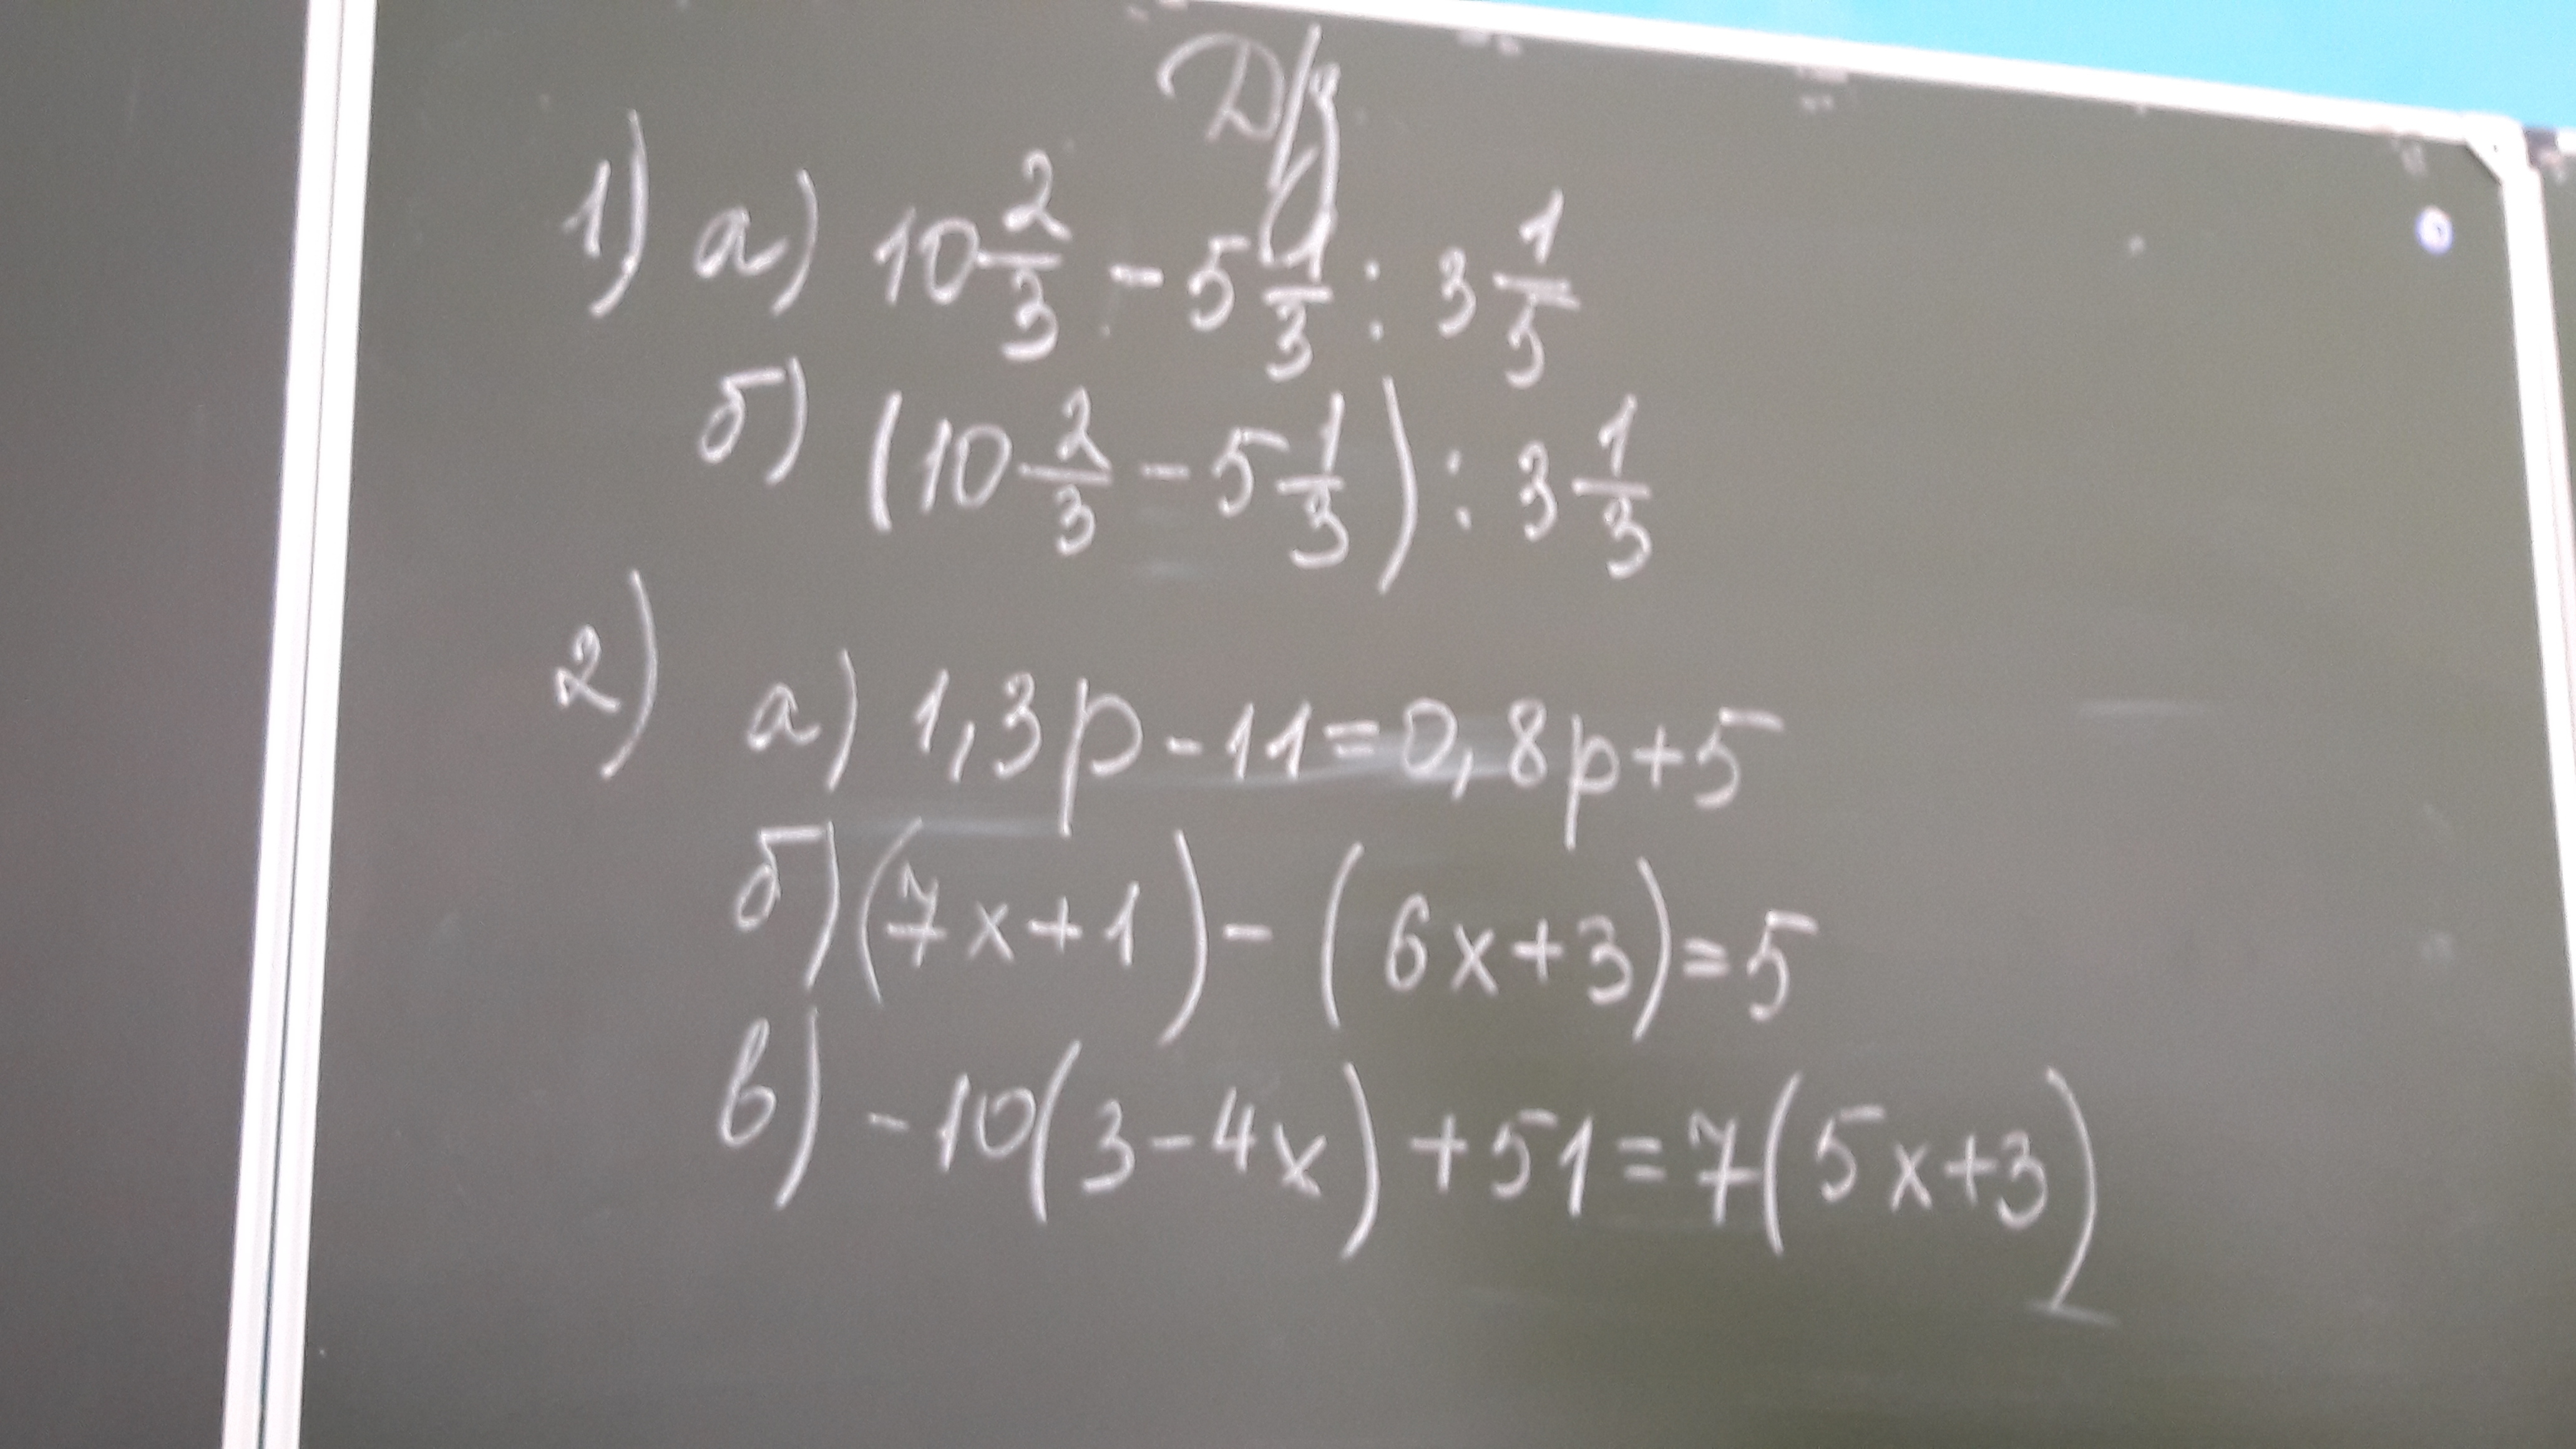 Д/з
1) а) 10 2/3 - 5 1/3 : 3 1/5
б) (10 2/3 - 5 1/3) : 3 1/3
2) а) 1,3p - 11 = 0,8p + 5
б) (7x + 1) - (6x + 3) = 5
в) -10(3 - 4x) + 51 = 7(5x + 3)